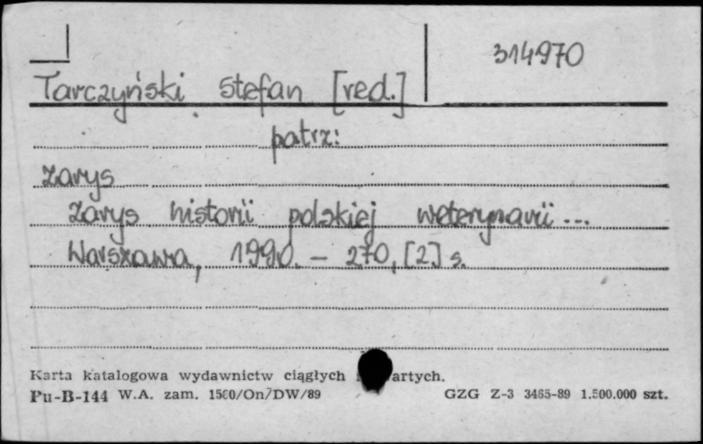 314970
Tarczyński Stefan [red.]
patrz:
Zarys
Zarys historii polskiej weterynarii...
Warszawa, 1990. – 270, [2] s.
Karta katalogowa wydawnictw ciągłych artych.
Pu-B-144 W.A. zam. 1560/On/DW/89 GZG Z-3 3465-89 1.500.000 szt.